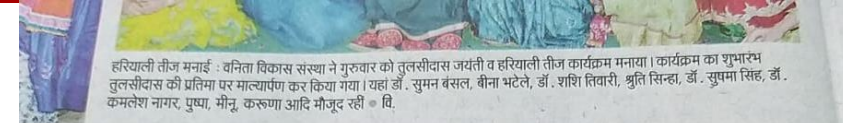 हरियाली तीज मनाई : वनिता विकास संस्था ने गुरुवार को तुलसीदास जयंती व हरियाली तीज कार्यक्रम मनाया । कार्यक्रम का शुभारंभ
तुलसीदास की प्रतिमा पर माल्यार्पण कर किया गया । यहां डॉ . सुमन बंसल, बीना भटेले, डॉ . शशि तिवारी, श्रुति सिन्हा, डॉ . सुषमा सिंह, डॉ .
कमलेश नागर, पुष्पा, मीनू, करूणा आदि मौजूद रहीं ● वि.